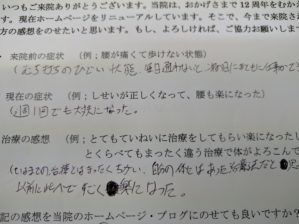 いつもご来院ありがとうございます。当院は、おかげさまで12周年をむか
す。現在ホームページをリニューアルしています。そこで、今まで来院さ
方の感想をのせたいと思います。もし、よろしければ、ご協力お願いしま
来院前の症状 (例；腰が痛くて歩けない状態)
むちうちのひどい状態
現在の症状 (例；しせいが正しくなって、腰も楽になった)
週1回でも大丈夫になった。
治療の感想 (例；とてもていねいに治療をしてもらい楽になった
とくらべてもまったく違う治療で体がよろこんで
いままでの治療とはまったくちがい、
以前に比べて 楽になった。
記の感想を当院のホームページ・ブログにのせても良いですか